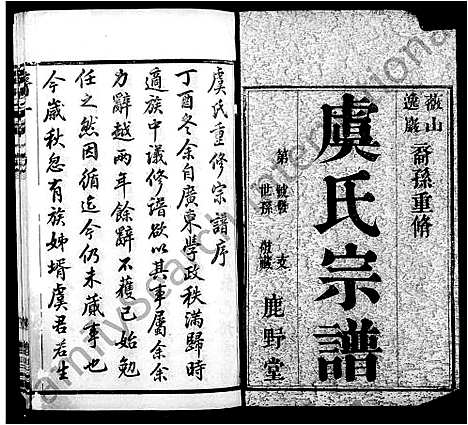 徽山
逸巖
裔孫重脩
虞氏宗譜
第 號發 支
世孫 敬藏
鹿野堂
虞氏重修宗譜序
丁酉冬余自廣東學政秩滿歸時
適族中議修譜欲以其事屬余余
力辭越兩年餘辭不獲已始勉
任之然因循迄今仍未蕆事也
今歲秋忽有族姊壻虞君若生